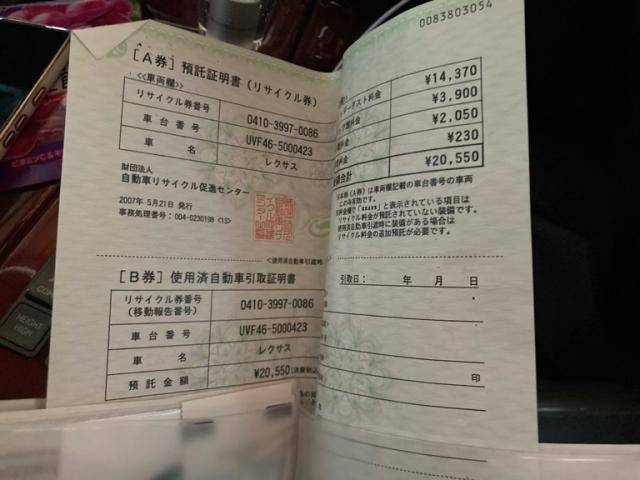 0083803054
[A券] 預託証明書 (リサイクル券)
<<車両欄>>
リサイクル券番号 0410-3997-0086
車台番号 UVF46-5000423
車名 レクサス
財団法人
自動車リサイクル促進センター
2007年 5月21日 発行
事務処理番号：004-0230198 <1S>
¥14,370
ーダスト料金 ¥3,900
¥2,050
料金 ¥230
金合計 ¥20,550
本券(A券)は車両欄記載の車台番号の車両
のみ有効です。
料金欄で「*****」と表示されている項目は
リサイクル料金が預託されていない装備です。
使用済自動車引取時に装備がある場合は
リサイクル料金の追加預託が必要です。
<使用済自動車引取時
[B券] 使用済自動車引取証明書
リサイクル券番号
(移動報告番号) 0410-3997-0086
車台番号 UVF46-5000423
車名 レクサス
預託金額 ¥20,550(消費税込
引取日： 年 月 日
印
HEIGHT
HIGH